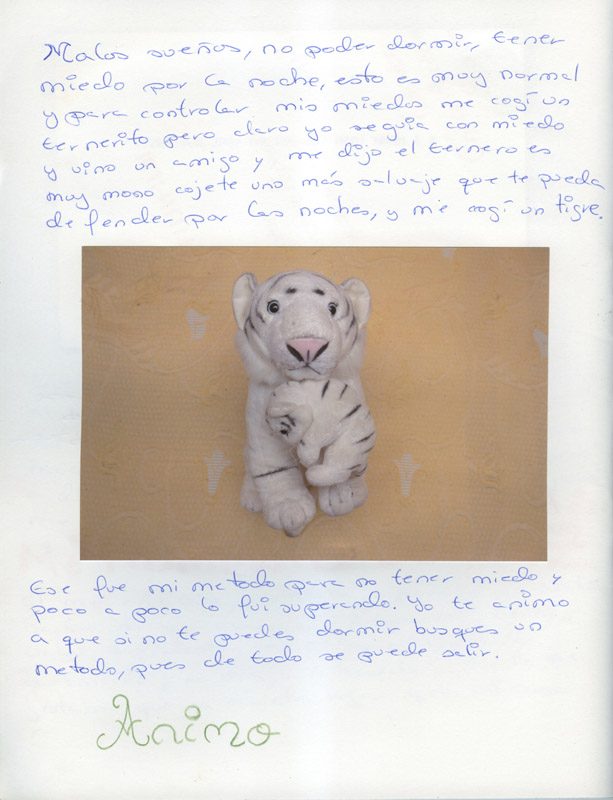 Malos sueños, no poder dormir, tener
miedo por la noche, esto es muy normal
y para controlar mis miedos me cogí un
ternerito pero claro yo seguia con miedo
y vino un amigo y me dijo el ternero es
muy mono cojete uno más salvaje que te pueda
defender por las noches, y me cogí un tigre.
Ese fue mi metodo para no tener miedo y
poco a poco lo fui superando. Yo te animo
a que si no te puedes dormir busques un
metodo, pues de todo se puede salir.
Animo